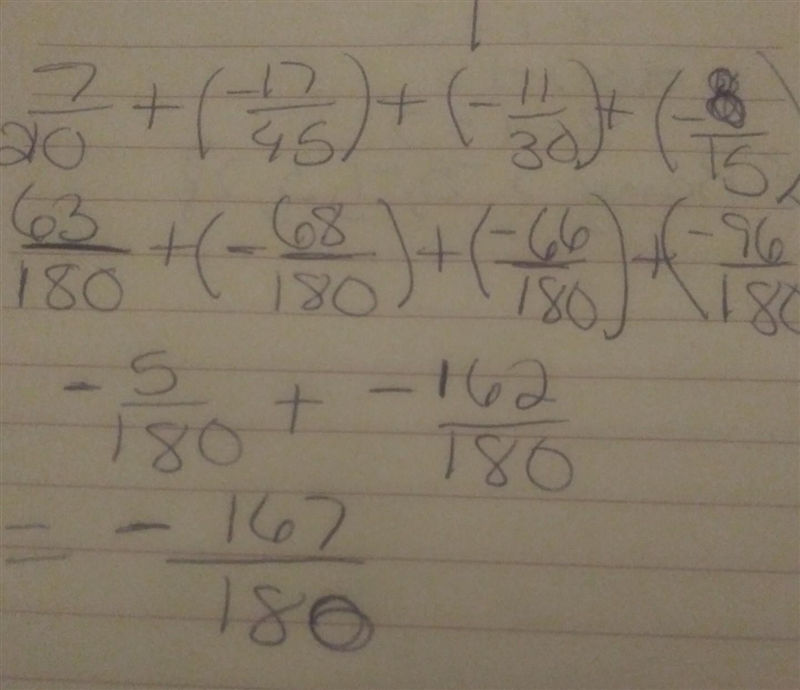 7/20 + (-17/45) + (-11/30) + (-8/15)
63/180 + (-68/180) + (-66/180) + (-96/180
-5/180 + -162/180
= -167/180